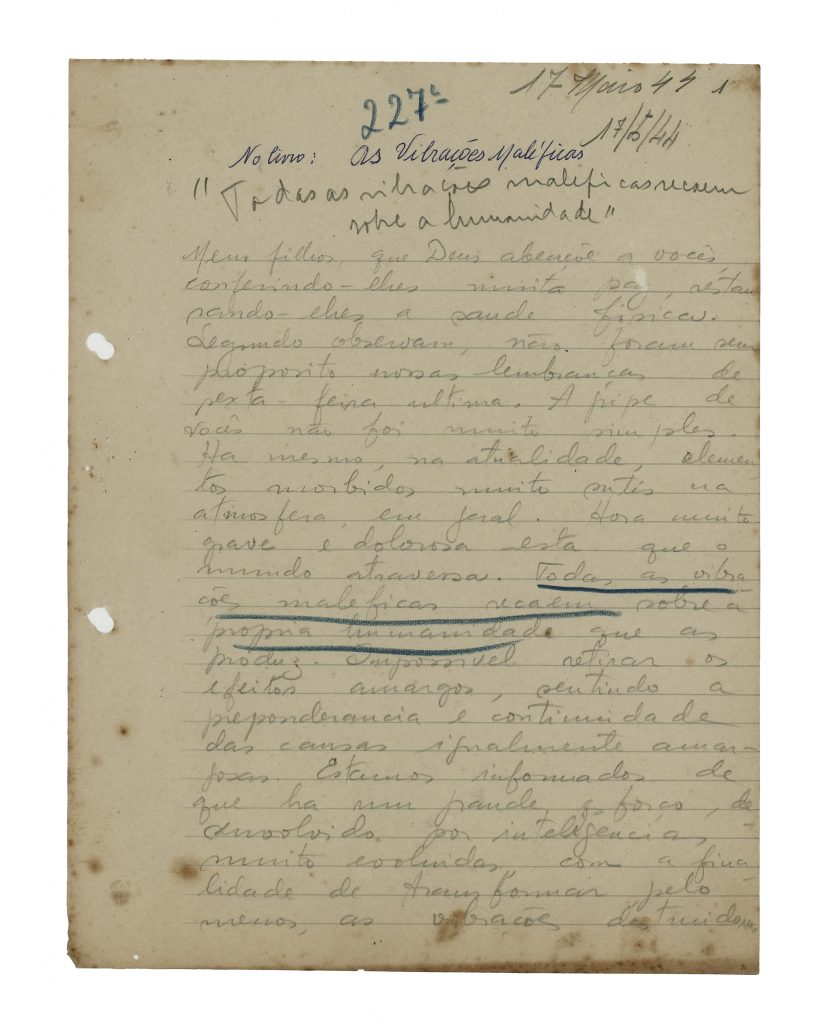 17 Maio 44 1
227ª
17/5/44
No livro: As Vibrações Maléficas
"Todas as vibrações maleficas recaem
sobre a humanidade"
Meus filhos, que Deus abençôe a vocês,
conferindo-lhes muita paz, restau
rando-lhes a saude física.
Segundo observam, não foram sem
proposito nossas lembranças de
sexta-feira ultima. A gripe de
vocês não foi muito simples.
Ha mesmo, na atualidade, elemen
tos morbidos muito sutis na
atmosfera, em geral. Hora muito
grave e dolorosa esta que o
mundo atravessa. Todas as vibra
ções maleficas recaem sobre a
propria humanidade que as
produz. Impossivel retirar os
efeitos amargos, sentindo a
preponderancia e continuidade
das causas igualmente amar-
gosas. Estamos informados de
que ha um grande esforço, de
senvolvido por inteligencias
muito evoluidas, com a fina
lidade de transformar pelo
menos, as vibrações destruidoras,